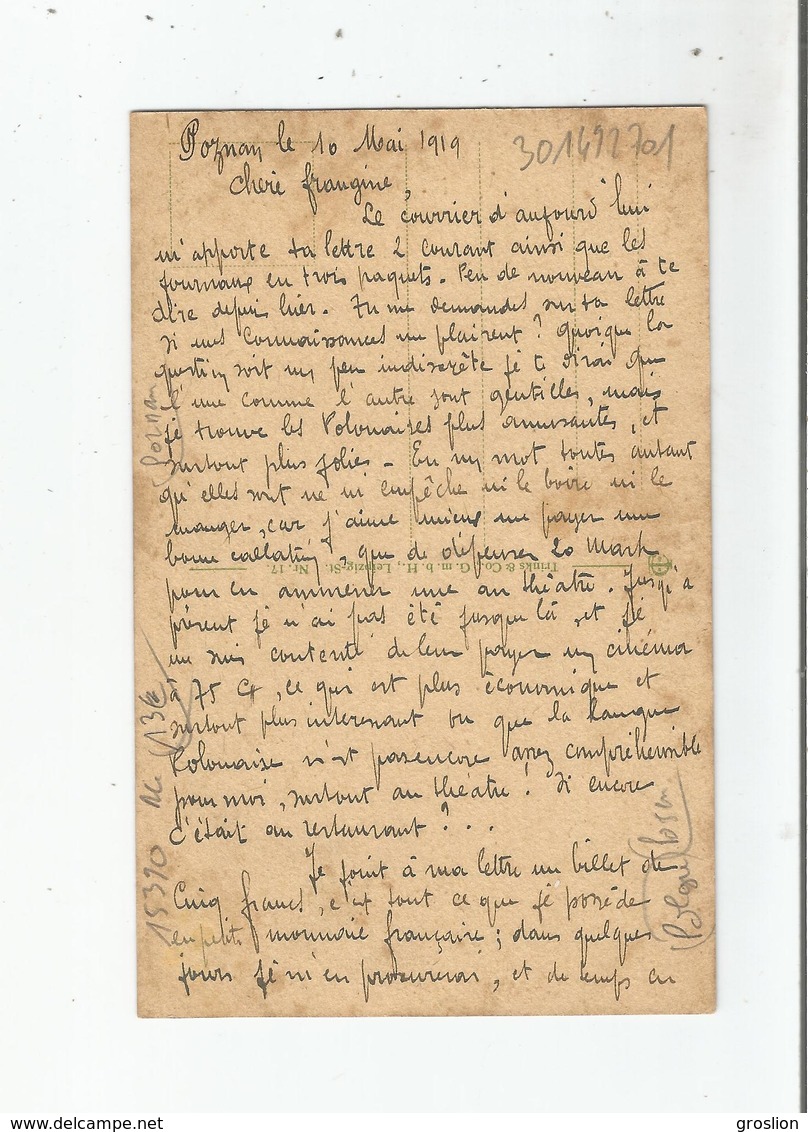 Poznan le 10 Mai 1919
301492701
Chere frangine,
Le courrier d'aujourd'hui
m'apporte ta lettre 2 courant ainsi que les
journaux en trois paquets. Peu de nouveau à te
dire depuis hier. Tu me demandes sur ta lettre
si mes connaissances me plaisent ? Quoique la
question soit un peu indiscrète je te dirai que
l'une comme l'autre sont gentilles, mais
je trouve les Polonaises plus amusantes, et
surtout plus jolies - En un mot toutes autant
qu'elles sont ne m'empêche ni le boire ni le
manger, car j'aime mieux me payer une
bonne collation, que de dépenser 20 Mark
pour en ammener une au théâtre. Jusqu'à
présent je n'ai pas été jusque là, et je
me suis contenté de leur payer un cinéma
à 75 , ce qui est plus économique et
surtout plus interessant vu que la langue
Polonaise n'est pas encore assez compréhensible
pour moi, surtout au théâtre ! Si encore
c'était au restaurant ? . . .
Je joint à ma lettre un billet de
Cinq francs, c'est tout ce que je possède
en petite monnaie française ; dans quelques
jours je m'en procurerai, et de temps en
Trinks & Co., G. m. b. H., Leipzig-St. Nr. 17.
Poznan
15370
Pologne Posen
www.delcampe.net
groslion